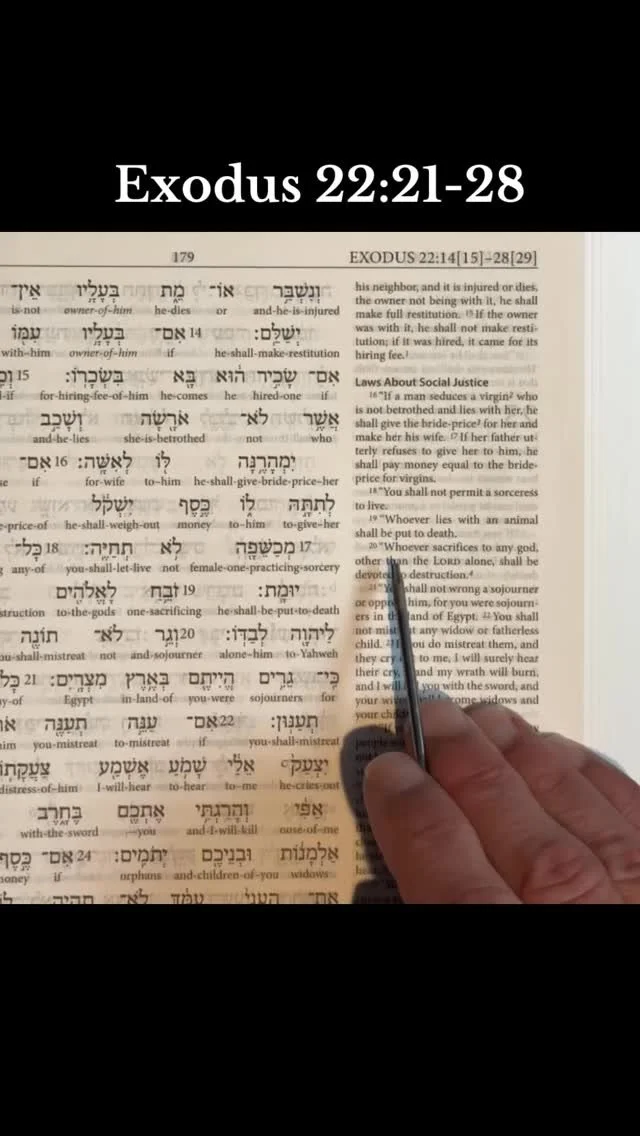 Exodus 22:21-28
179
EXODUS 22:14[15]–28[29]
וְנִשְׁבַּ֥ר אוֹ־ מֵ֑ת בְּעָלָ֥יו אֵין־
is-not owner-of-him he-dies or and-he-is-injured
יְשַׁלֵּֽם׃ 14 אִם־ בְּעָלָ֥יו עִמּ֖וֹ
with-him owner-of-him if he-shall-make-restitution
אִם־ שָׂכִ֣יר ה֔וּא בָּ֖א בִּשְׂכָרֽוֹ׃ 15
for-hiring-fee-of-him he-comes he hired-one if
אֲשֶׁ֥ר לֹא־ אֹרָ֖שָׂה וְשָׁכַ֣ב
and-he-lies she-is-betrothed not who
יִמְהָרֶ֥נָּה לּ֖וֹ לְאִשָּֽׁה׃ 16 אִם־
if for-wife to-him he-shall-give-bride-price-her
לְתִתָּ֣הּ ל֑וֹ כֶּ֣סֶף יִשְׁקֹ֔ל
e-price-of he-shall-weigh-out money to-him to-give-her
17 מְכַשֵּׁפָ֖ה לֹ֥א תְחַיֶּֽה׃ 18 כָּל־
any-of you-shall-let-live not female-one-practicing-sorcery
יוּמָֽת׃ 19 זֹבֵ֥חַ לָאֱלֹהִ֖ים
struction to-the-gods one-sacrificing he-shall-be-put-to-death
לַיהוָ֥ה לְבַדּֽוֹ׃ 20 וְגֵ֥ר לֹא־ תוֹנֶ֖ה
ou-shall-mistreat not and-sojourner alone-him to-Yahweh
כִּֽי־ גֵרִ֥ים הֱיִיתֶ֖ם בְּאֶ֥רֶץ מִצְרָֽיִם׃ 21 כָּל
y-of Egypt in-land-of you-were sojourners for
תְעַנּֽוּן׃ 22 אִם־ עַנֵּ֥ה תְעַנֶּ֖ה
him you-mistreat to-mistreat if you-shall-mistreat
יִצְעַק֙ אֵלַ֔י שָׁמֹ֥עַ אֶשְׁמַ֖ע צַעֲקָתֽוֹ
distress-of-him I-will-hear to-hear to-me he-cries-out
אַפִּ֔י וְהָרַגְתִּ֥י אֶתְכֶ֖ם בֶּחָ֑רֶב
with-the-sword —you and-I-will-kill nose-of-me
אַלְמָנ֔וֹת וּבְנֵיכֶ֖ם יְתֹמִֽים׃ 24 אִם־ כֶּ֣סֶף
money if orphans and-children-of-you widows
his neighbor, and it is injured or dies,
the owner not being with it, he shall
make full restitution. 15 If the owner
was with it, he shall not make resti-
tution; if it was hired, it came for its
hiring fee.1
Laws About Social Justice
16 "If a man seduces a virgin2 who
is not betrothed and lies with her, he
shall give the bride-price3 for her and
make her his wife. 17 If her father ut-
terly refuses to give her to him, he
shall pay money equal to the bride-
price for virgins.
18 "You shall not permit a sorceress
to live.
19 "Whoever lies with an animal
shall be put to death.
20 "Whoever sacrifices to any god,
other than the LORD alone, shall be
devoted to destruction.4
21 "You shall not wrong a sojourner
or oppress him, for you were sojourn-
ers in the land of Egypt. 22 You shall
not mistreat any widow or fatherless
child. 23 If you do mistreat them, and
they cry out to me, I will surely hear
their cry, and my wrath will burn,
and I will kill you with the sword, and
your wives shall become widows and
your